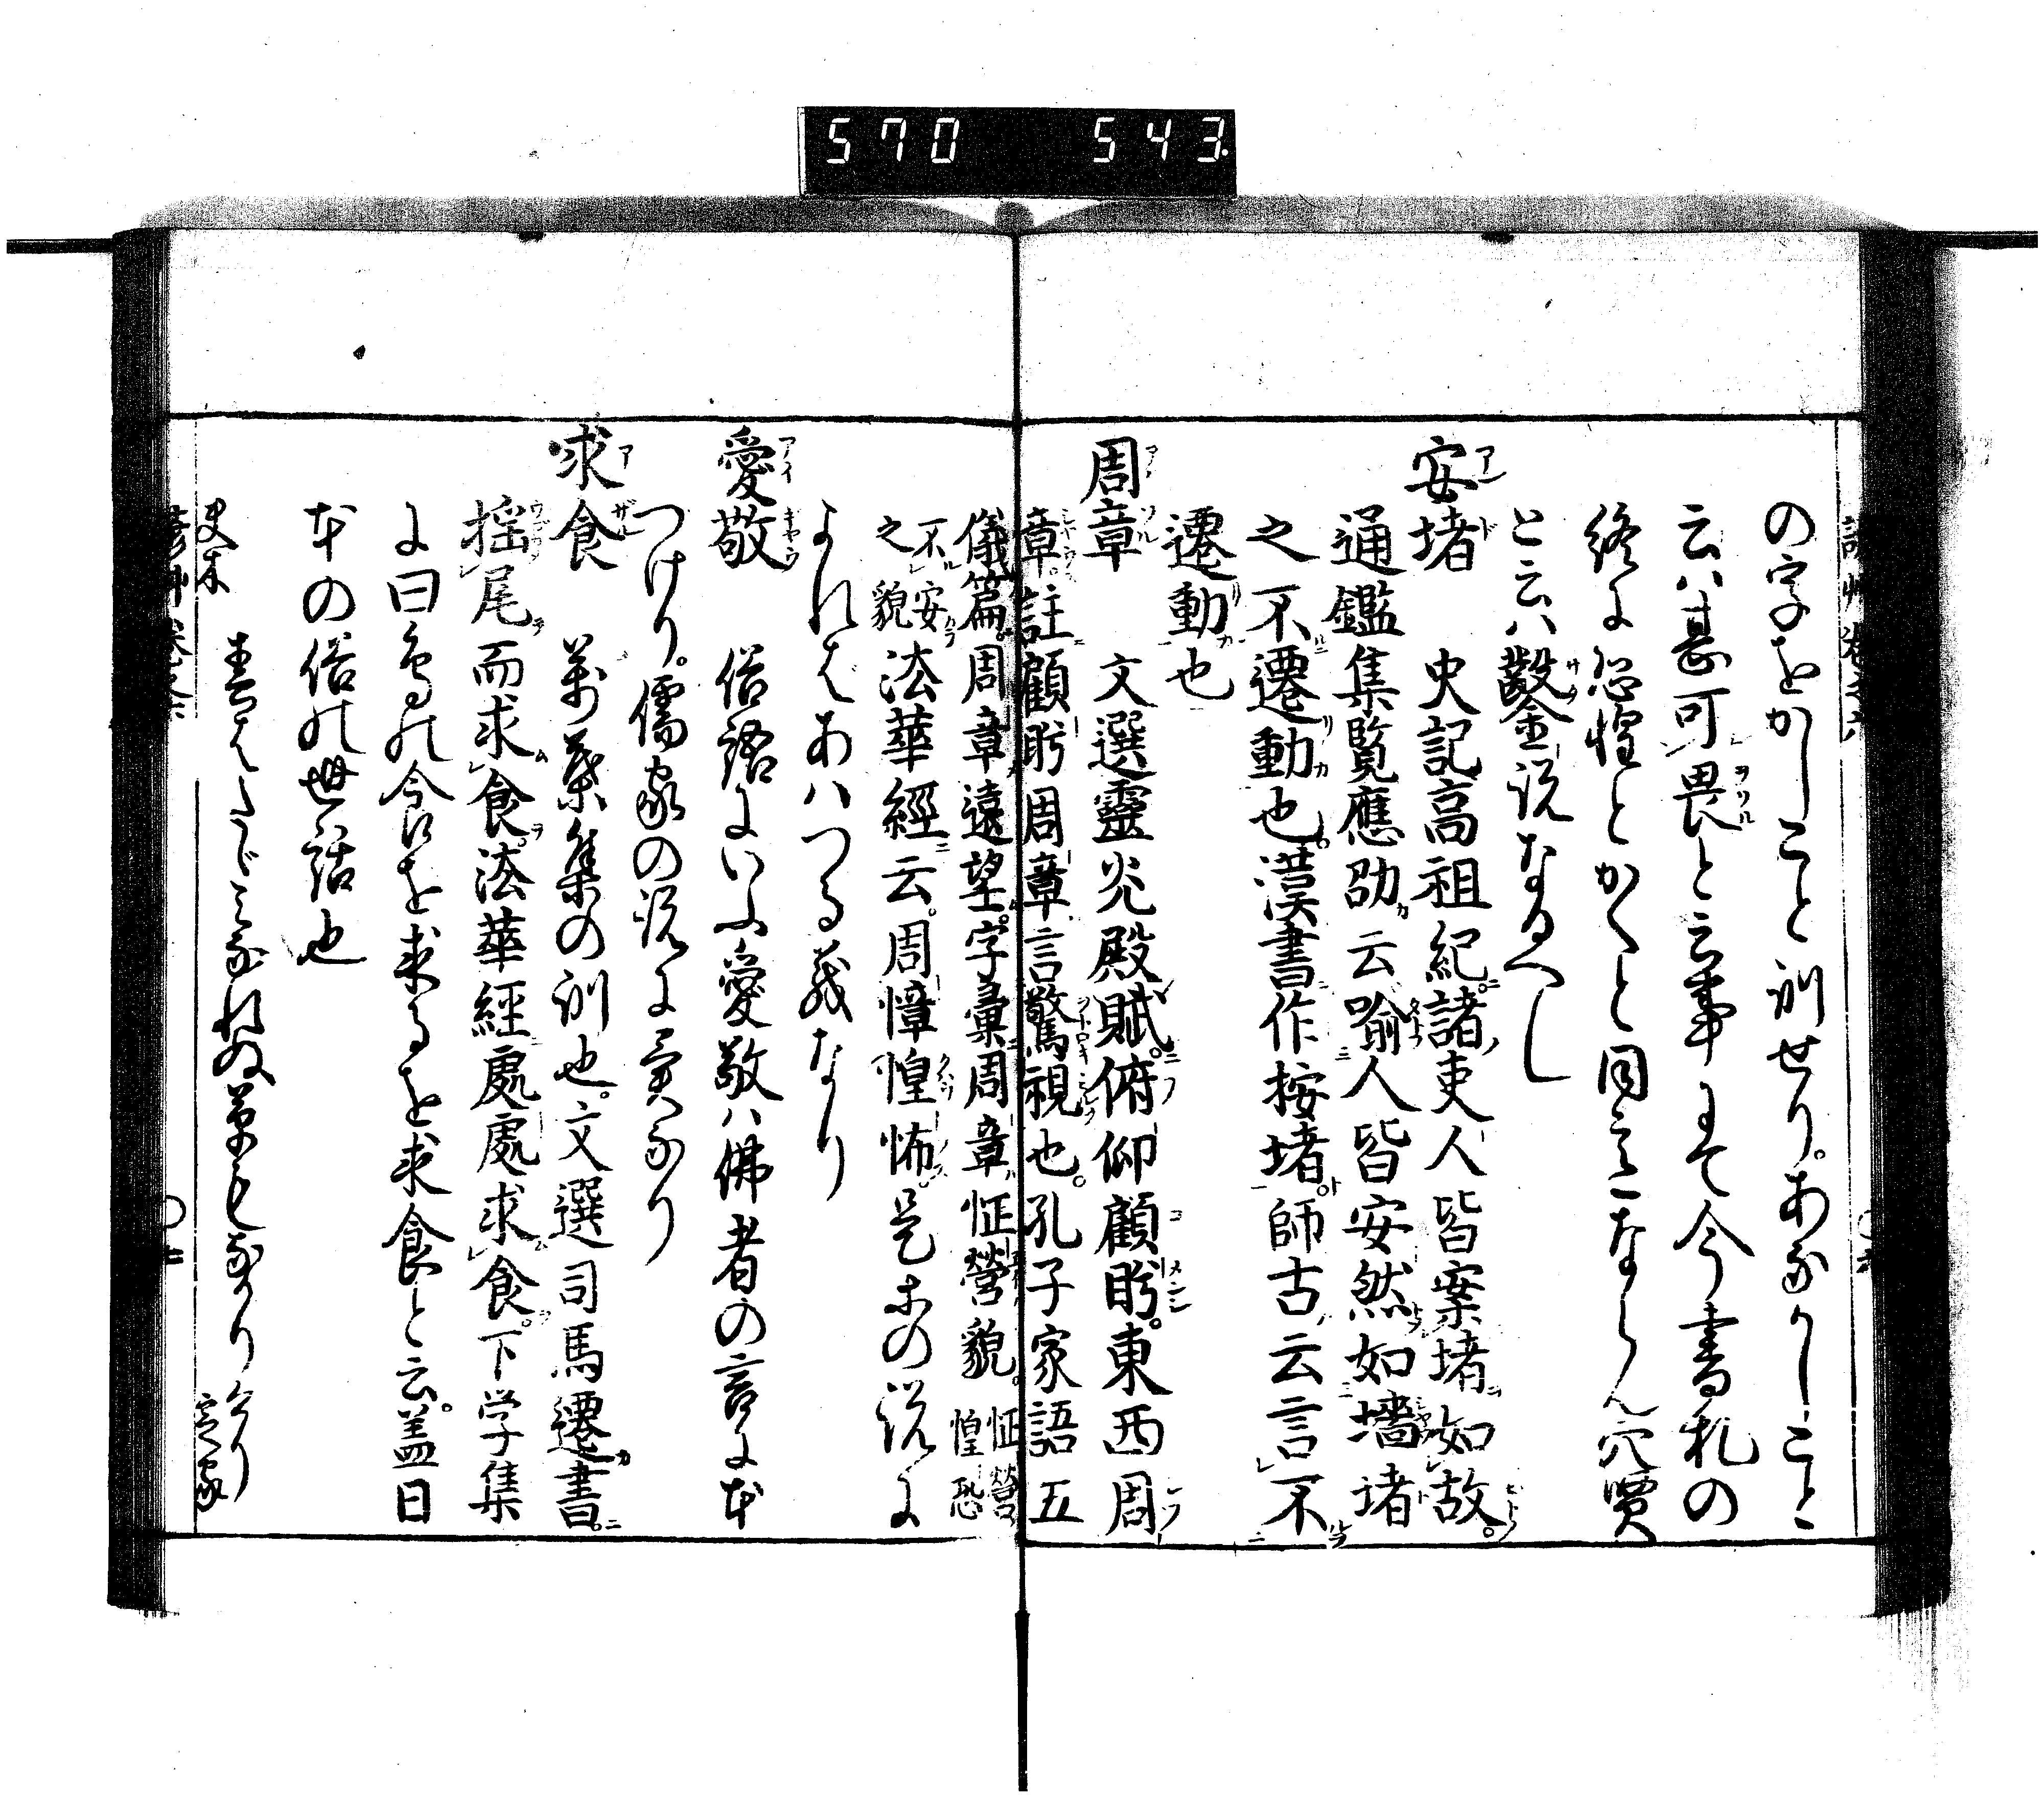 570 543
の字をかしこと訓せりあなかしこと
云ハ甚可畏と云事にて今書札の
終に恐惶とかくと同意ならん穴賢
と云ハ鑿説なるへし
安堵 史記高祖紀諸吏人皆案堵如故
通鑑集覧應劭云喩人皆安然如墻堵
之不遷動也漢書作按堵師古云言不
遷動也
周章 文選靈光殿賦俯仰顧眄東西周
章註顧眄周章言驚視也孔子家語五
儀篇周章遠望字彙周章怔營貌怔營惶恐
不安之貌法華經云周慞惶怖是等の説に
よれはあハつる義なり
愛敬 俗語にいふ愛敬ハ佛者の言に本
つけり儒家の説に異なり
求食 萬葉集の訓也文選司馬遷書
揺尾而求食法華經處處求食下学集
に曰鳥の食を求るを求食と云盖日
本の俗の世話也